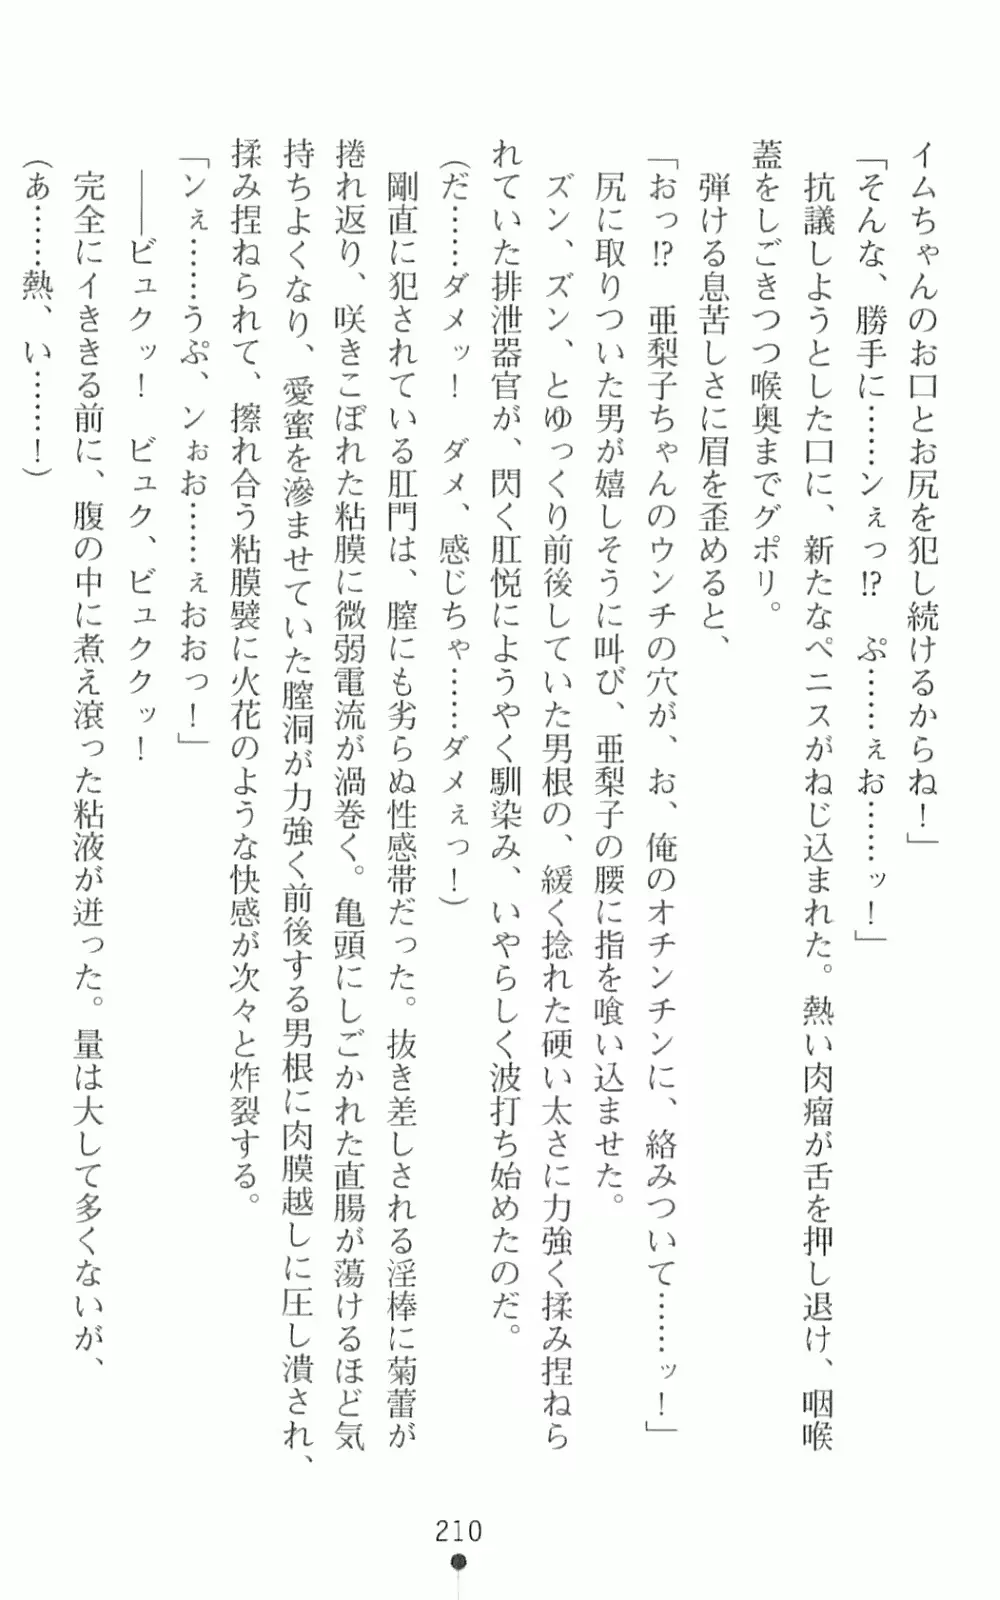 イムちゃんのお口とお尻を犯し続けるからね！」
「そんな、勝手に……ンぇっ!?　ぷ……ぇお……ッ！」
抗議しようとした口に、新たなペニスがねじ込まれた。熱い肉瘤が舌を押し退け、咽喉
蓋をしごきつつ喉奥までグポリ。
弾ける息苦しさに眉を歪めると、
「おっ!?　亜梨子ちゃんのウンチの穴が、お、俺のオチンチンに、絡みついて……ッ！」
尻に取りついた男が嬉しそうに叫び、亜梨子の腰に指を喰い込ませた。
ズン、ズン、とゆっくり前後していた男根の、緩く捻れた硬い太さに力強く揉み捏ねら
れていた排泄器官が、閃く肛悦にようやく馴染み、いやらしく波打ち始めたのだ。
（だ……ダメッ！　ダメ、感じちゃ……ダメぇっ！）
剛直に犯されている肛門は、膣にも劣らぬ性感帯だった。抜き差しされる淫棒に菊蕾が
捲れ返り、咲きこぼれた粘膜に微弱電流が渦巻く。亀頭にしごかれた直腸が蕩けるほど気
持ちよくなり、愛蜜を滲ませていた膣洞が力強く前後する男根に肉膜越しに圧し潰され、
揉み捏ねられて、擦れ合う粘膜襞に火花のような快感が次々と炸裂する。
「ンぇ……うぷ、ンぉお……ぇおおっ！」
――ビュクッ！　ビュク、ビュククッ！
完全にイききる前に、腹の中に煮え滾った粘液が迸った。量は大して多くないが、
（あ……熱、い……！）
210